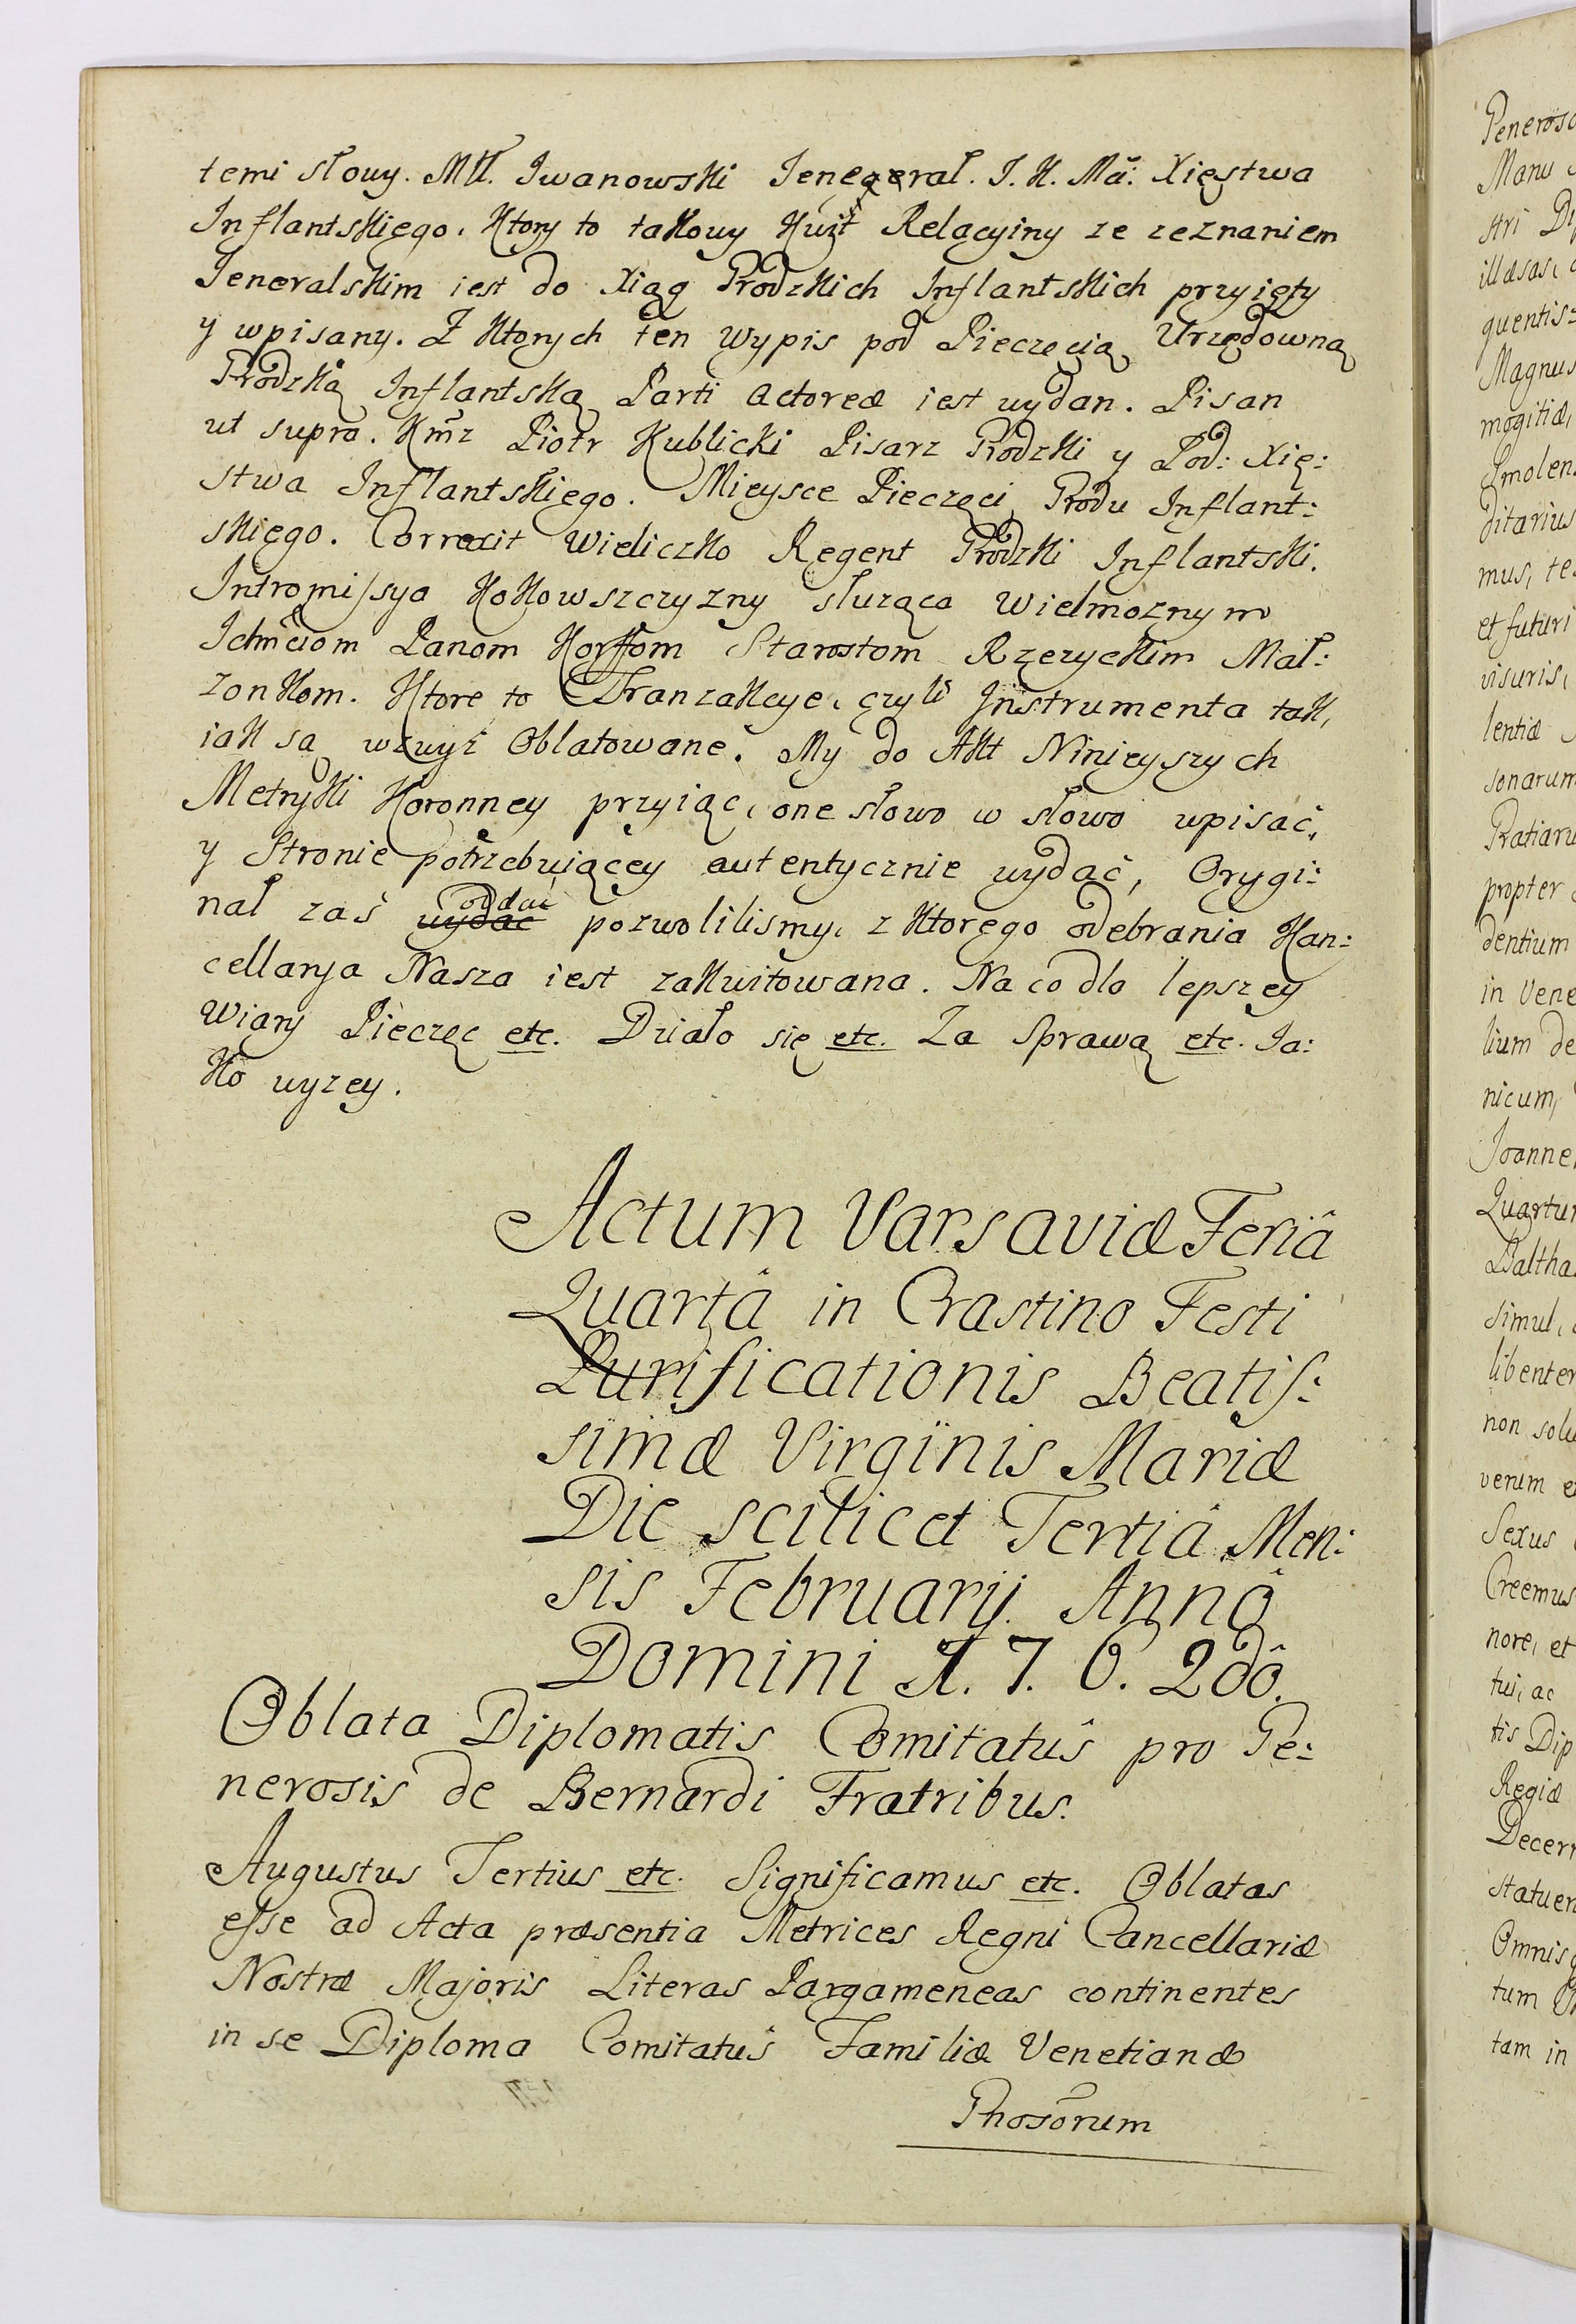 temi słowy. Mll. Iwanowski Jenegeral. J. K. Mći. Xięstwa
Inflantskięgo. Ktory to takowy Kwit Relacyiny ze zeznaniem
Jeneralskim iest do Xiąg Grodzkich Inflantskich przyięty
y wpisany. Z Ktorych ten Wypis pod Pieczęcią Urzędowną
Grodzką Inflantską Parti Actoreæ iest wydan. Pisan
ut supra. Kmrz Piotr Kublicki Pisarz Grodzki y Pod: Xię:
stwa Inflantskiego. Mieysce Pieczęci Grodu Inflant:
skięgo. Correxit Wieliczko Regent Grodzki Inflantski.
Intromissya Kokowszczyzny służąca Wielmożnym
Ichmćiom Panom Korffom Starostom Rzeżyckim Mał:
żonkom. Ktore to Tranzakcye, czyli Instrumenta tak,
iak są wzwyż Oblatowane. My do Akt Ninieyszych
Metryki Koronney przyiąc, one słowo w słowo wpisać,
y Stronie potrzebuiącey autentycznie wydać, Orygi:
nał zaś wydać oddać pozwolilismy, z Ktorego odebrania Kan:
cellarya Nasza iest zakwitowana. Na co dla lepszey
Wiary Pieczęc etc. Działo się etc. Za Sprawą etc. Ia:
ko wyzey.
Actum Varsaviæ Feriâ
Quartâ in Crastino Festi
Purificationis Beatis:
simæ Virginis Mariæ
Die scilicet Tertiâ Men:
sis Februarij Annô
Domini M. 7. 6. 2dô.
Oblata Diplomatis Comitatûs pro Ge:
nerosis de Bernardi Fratribus.
Augustus Tertius etc. Significamus etc. Oblatas
esse ad Acta præsentia Metrices Regni Cancellariæ
Nostræ Majoris Literas Pargameneas continentes
in se Diploma Comitatûs Familiæ Venetianæ
Gnosorum
Generoso
Manu
stri
illæsas,
quentis:
Magnus
mogitiæ,
Smolen
ditarius
mus, te
et futuri
visuris,
lentiæ
sonarum
Gratiaru
propter
dentium
in Vene
lium de
nicum,
Joanne
Quartu
Baltha
simul,
libenter
non solu
verum e
Sexus
Creemus
nore, et
tui, ac
tis Dip
Regiæ
Decer
statuen
Omnis
tum
tam in